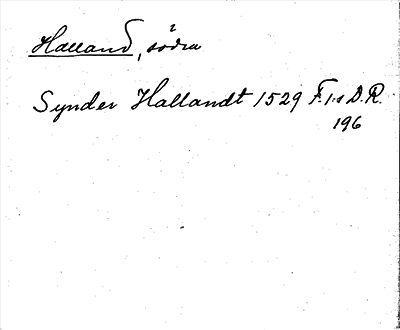 Halland, södra
Synder Hallandt 1529 F.I:s D.R.
196